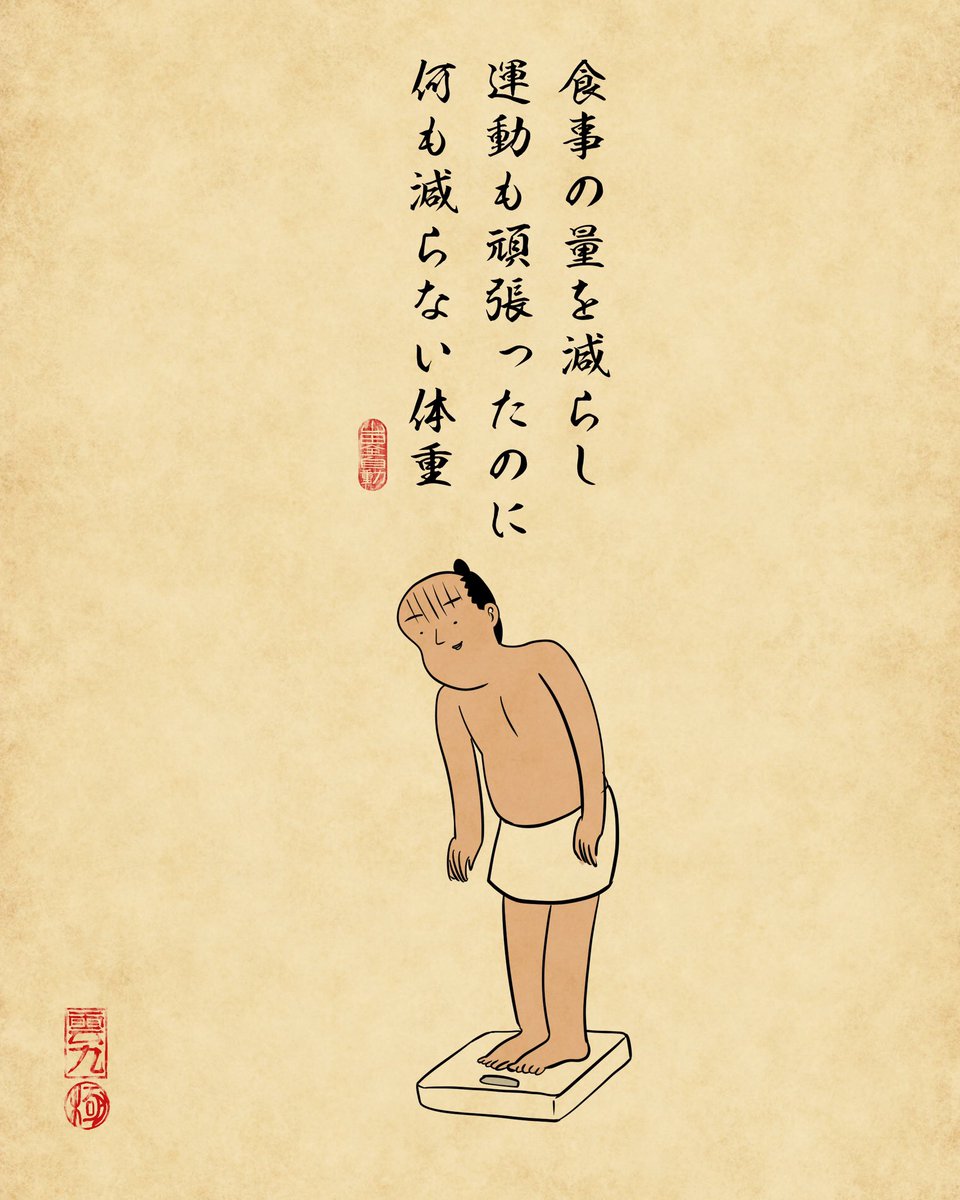 食事の量を減らし
運動も頑張ったのに
何も減らない体重